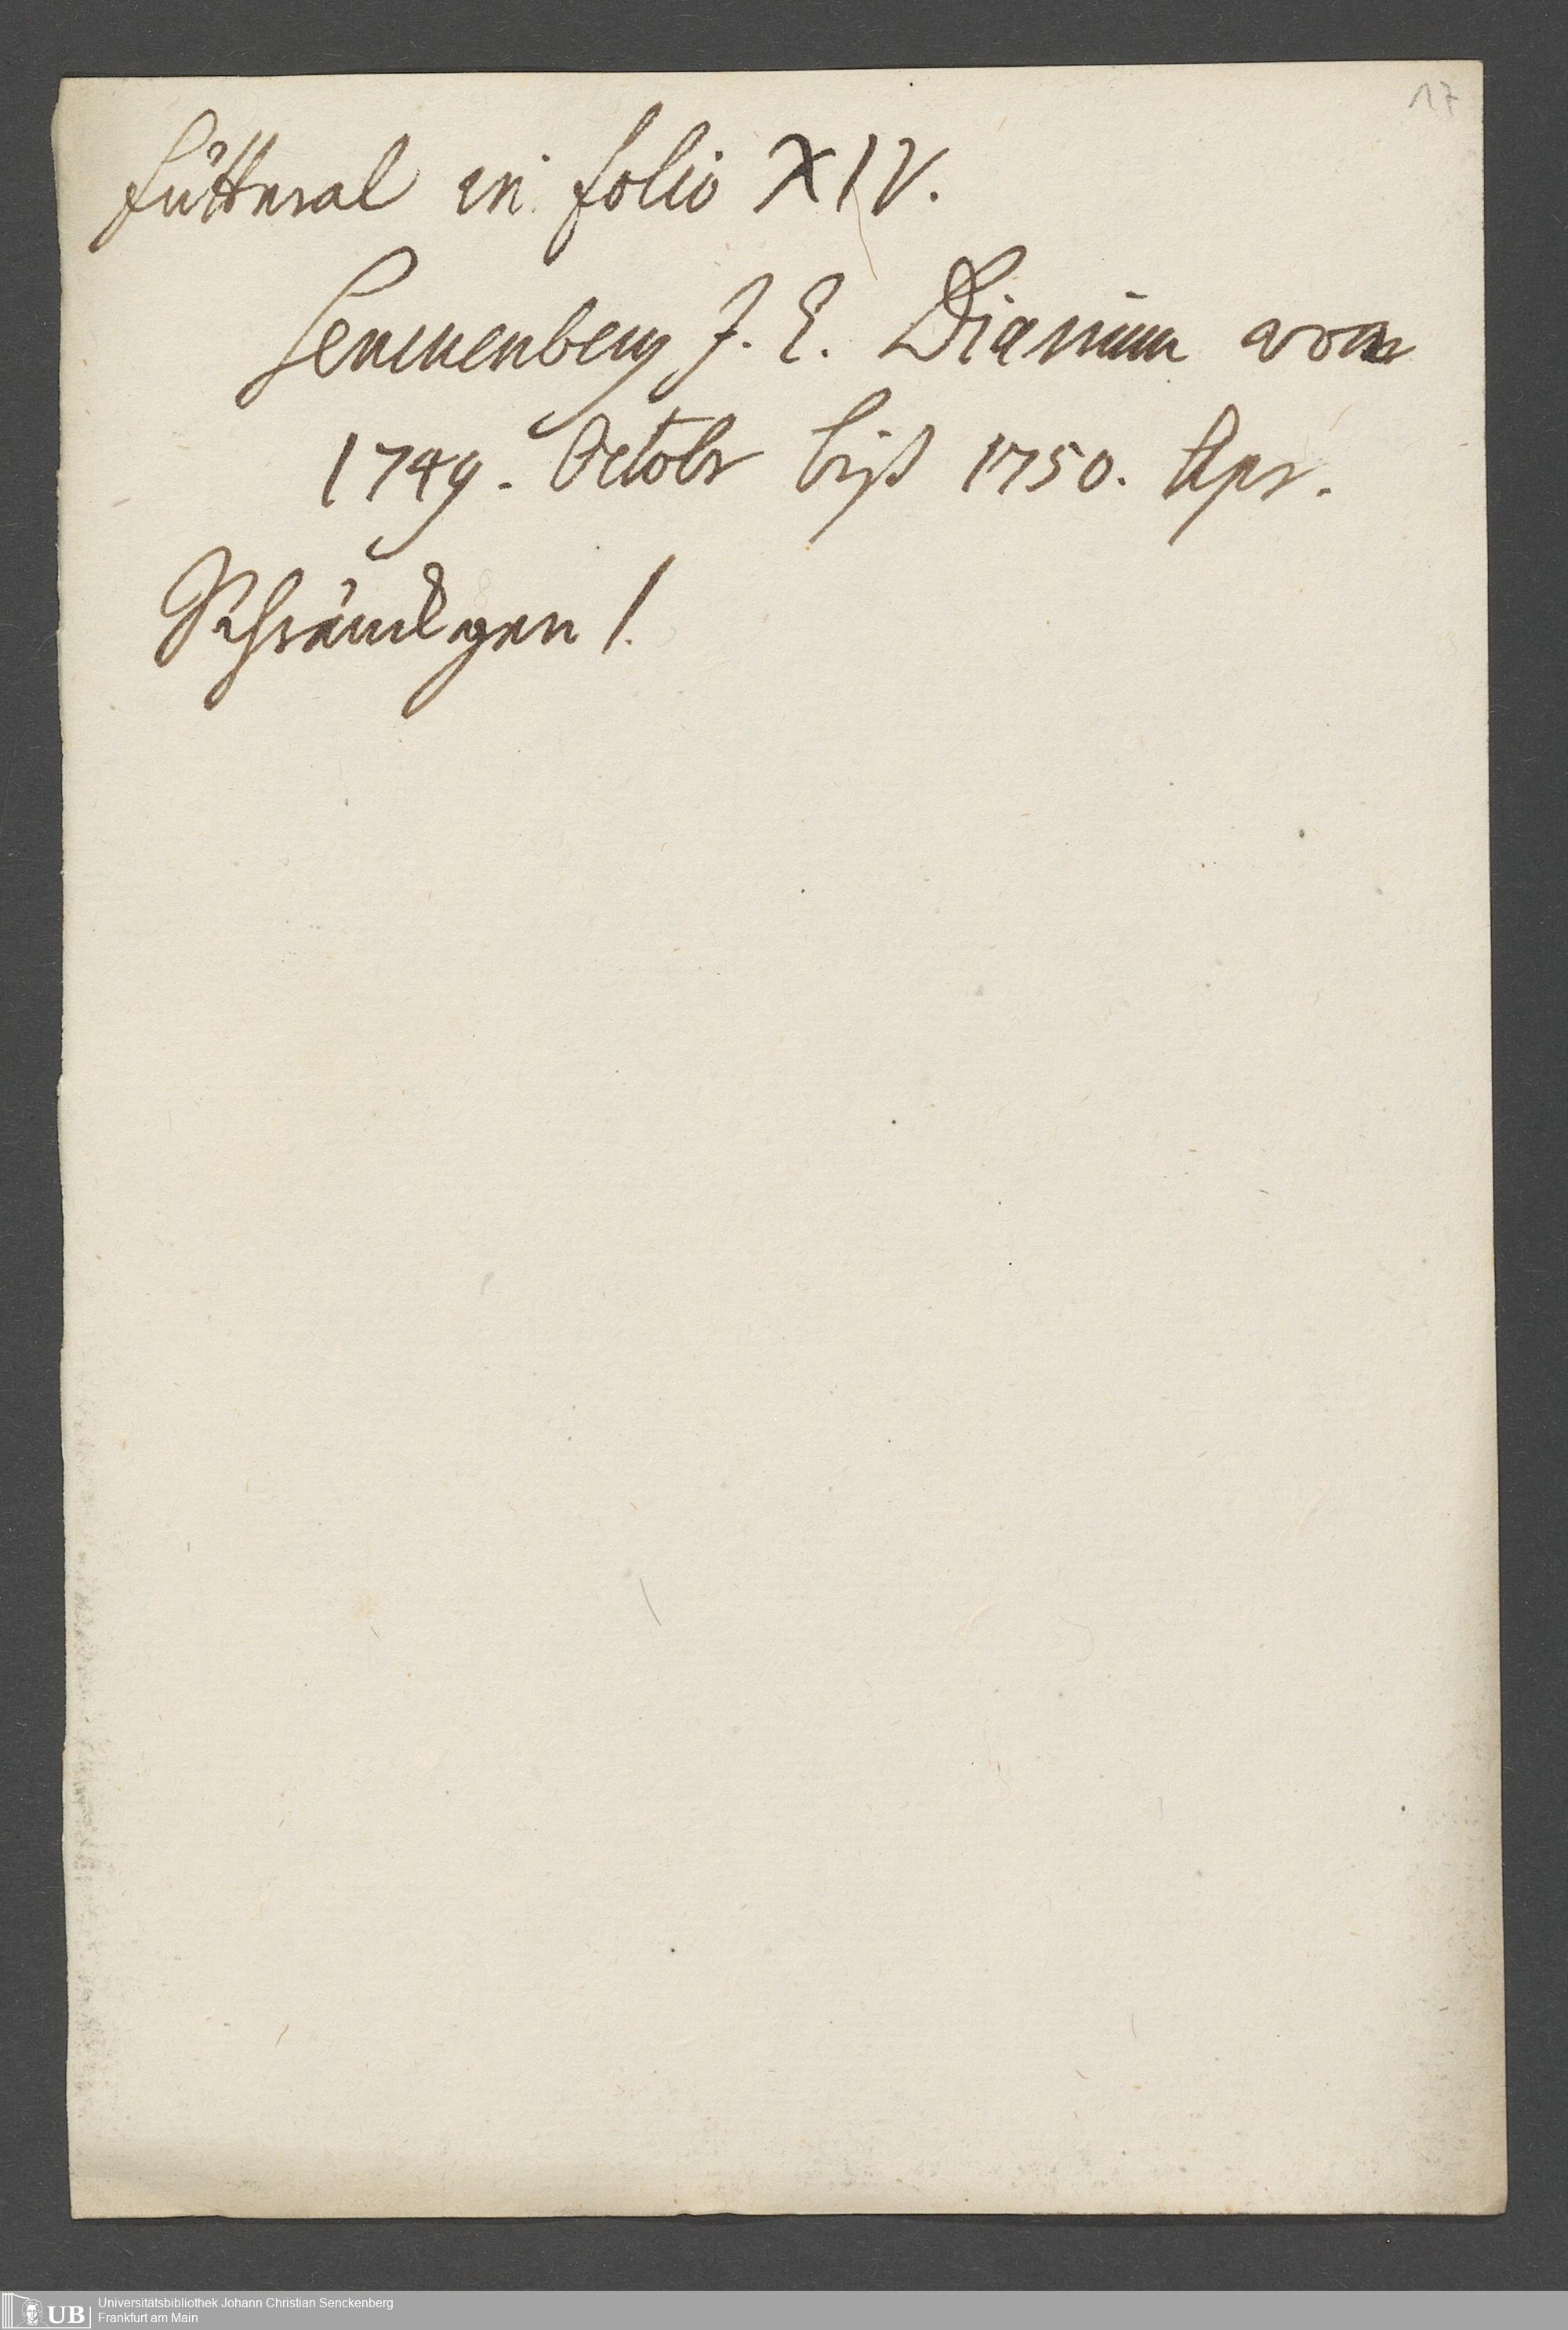 17
Futteral in folio XIV.
Senckenberg J. E. Diarium von
1749. Octobr biß 1750. Apr.
Schränckgen 1.
UB
Universitätsbibliothek Johann Christian Senckenberg
Frankfurt am Main